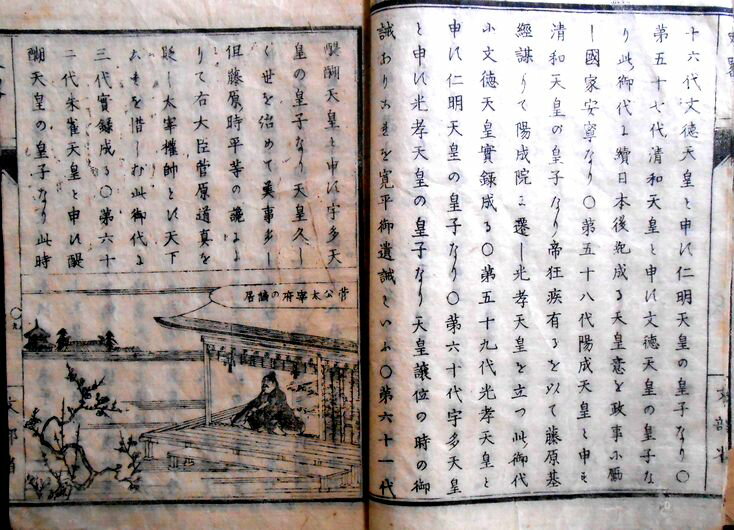 十六代文徳天皇と申は仁明天皇の皇子なり〇
第五十七代清和天皇と申は文徳天皇の皇子な
り此御代に續日本後紀成る天皇意を政事に勵
し國家安寧なり〇第五十八代陽成天皇と申は
清和天皇の皇子なり帝狂疾有るを以て藤原基
經謀りて陽成院に遷し光孝天皇を立つ此御代
に文徳天皇實録成る〇第五十九代光孝天皇と
申は仁明天皇の皇子なり〇第六十代宇多天皇
と申は光孝天皇の皇子なり天皇譲位の時の御
誡ありこれを寛平御遺誡といふ〇第六十一代
醍醐天皇と申は宇多天
皇の皇子なり天皇久し
く世を治めて美事多し
但藤原時平等の讒によ
りて右大臣菅原道真を
貶し太宰權帥とす天下
これを惜しむ此御代に
三代實録成る〇第六十
二代朱雀天皇と申は醍
醐天皇の皇子なり此時
菅公太宰府の謫居
〇九
文部省